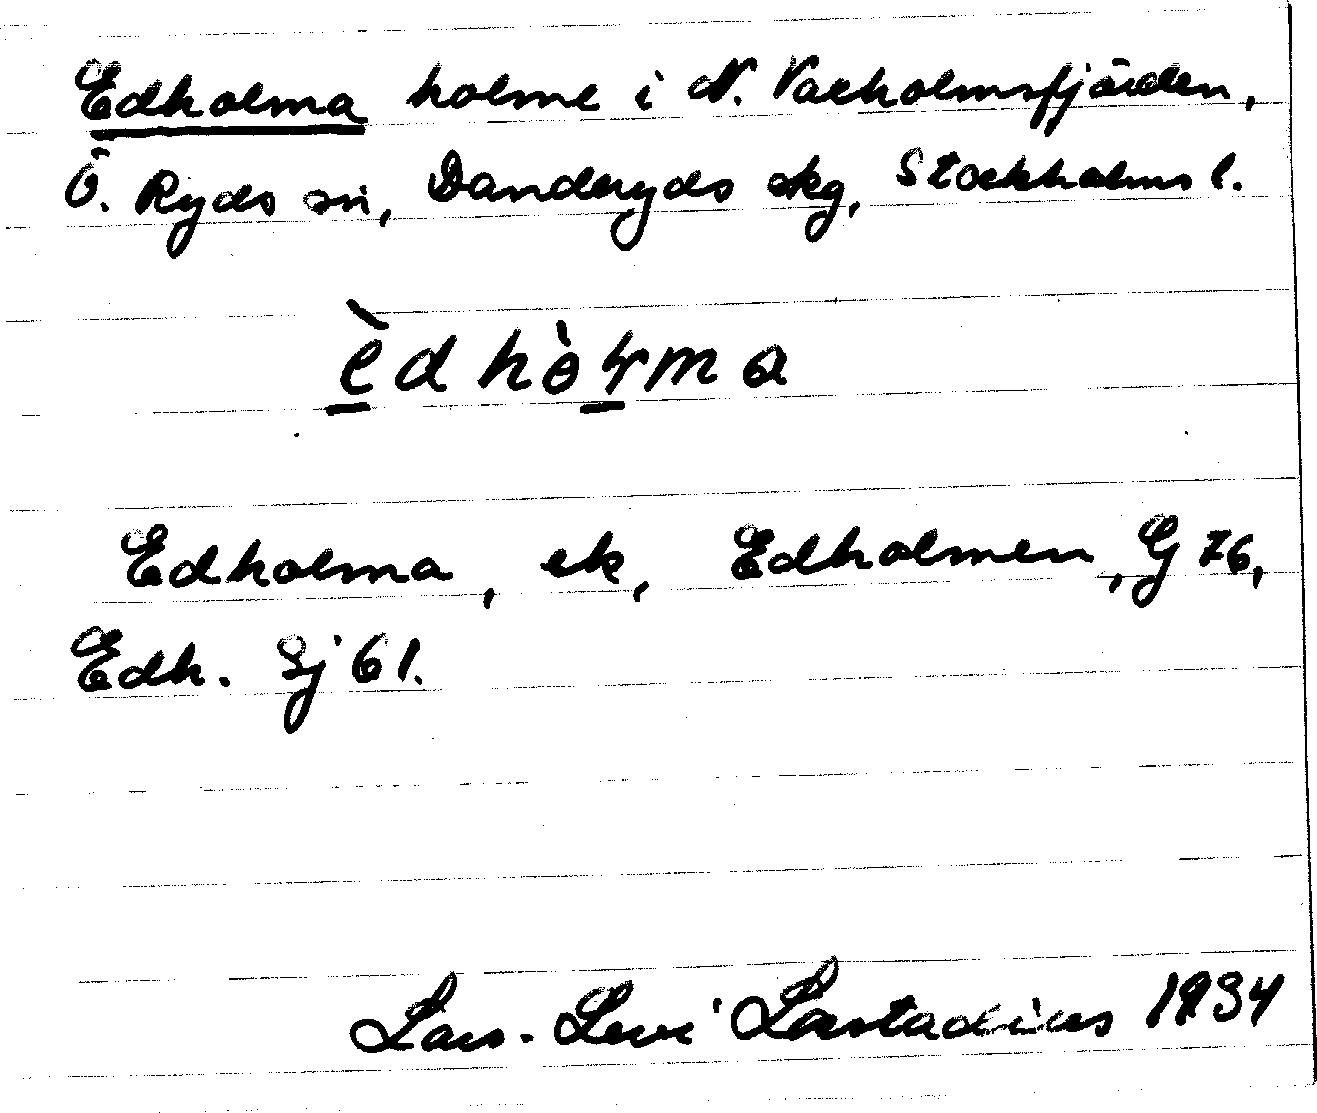 Edholma holme i N. Vaxholmsfjärden,
Ö. Ryds sn, Danderyds skg, Stockholms l.
èdhò̵ɫma
Edholma, ek, Edholmen, G 76,
Edh. Sj 61.
Lars-Levi Læstadius 1934